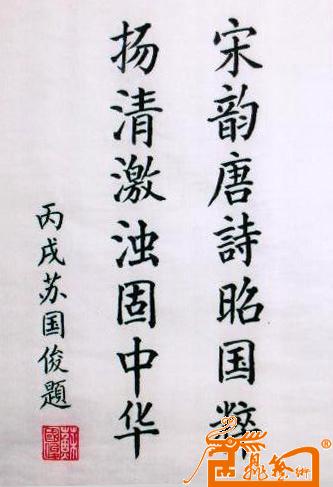 宋韵唐詩昭国粹
扬清激浊固中华
丙戌苏国俊題